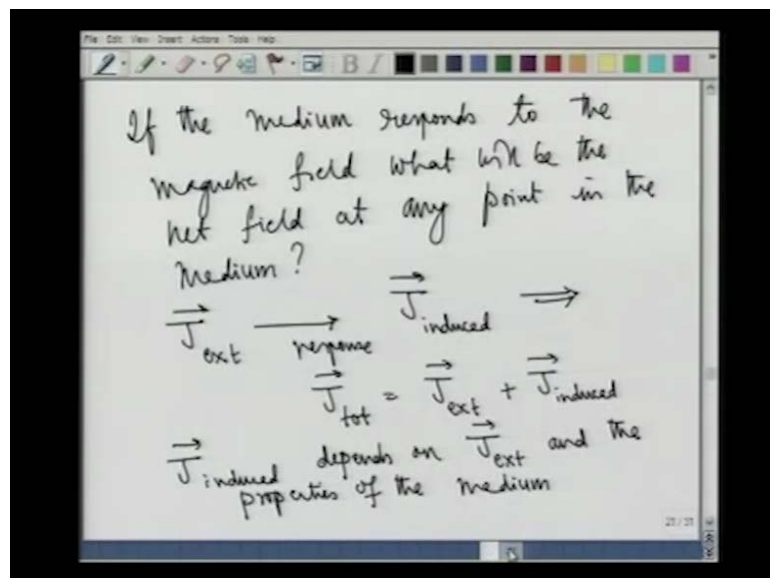 File Edit View Insert Actions Tools Help
B I
If the medium responds to the
magnetic field what will be the
net field at any point in the
medium?
J ext → response J induced ⇒
J tot = J ext + J induced
J induced depends on J ext and the
properties of the medium